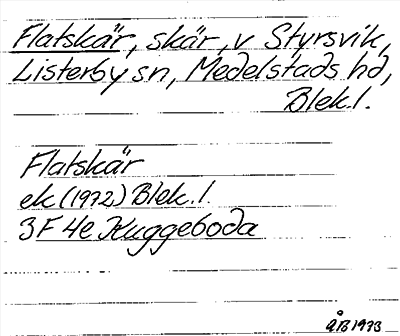 Flatskär, skär, v Styrsvik,
Listerby sn, Medelstads hd,
Blek.l.
Flatskär
ek (1972) Blek.l.
3F 4e Kuggeboda
ÅB 1973